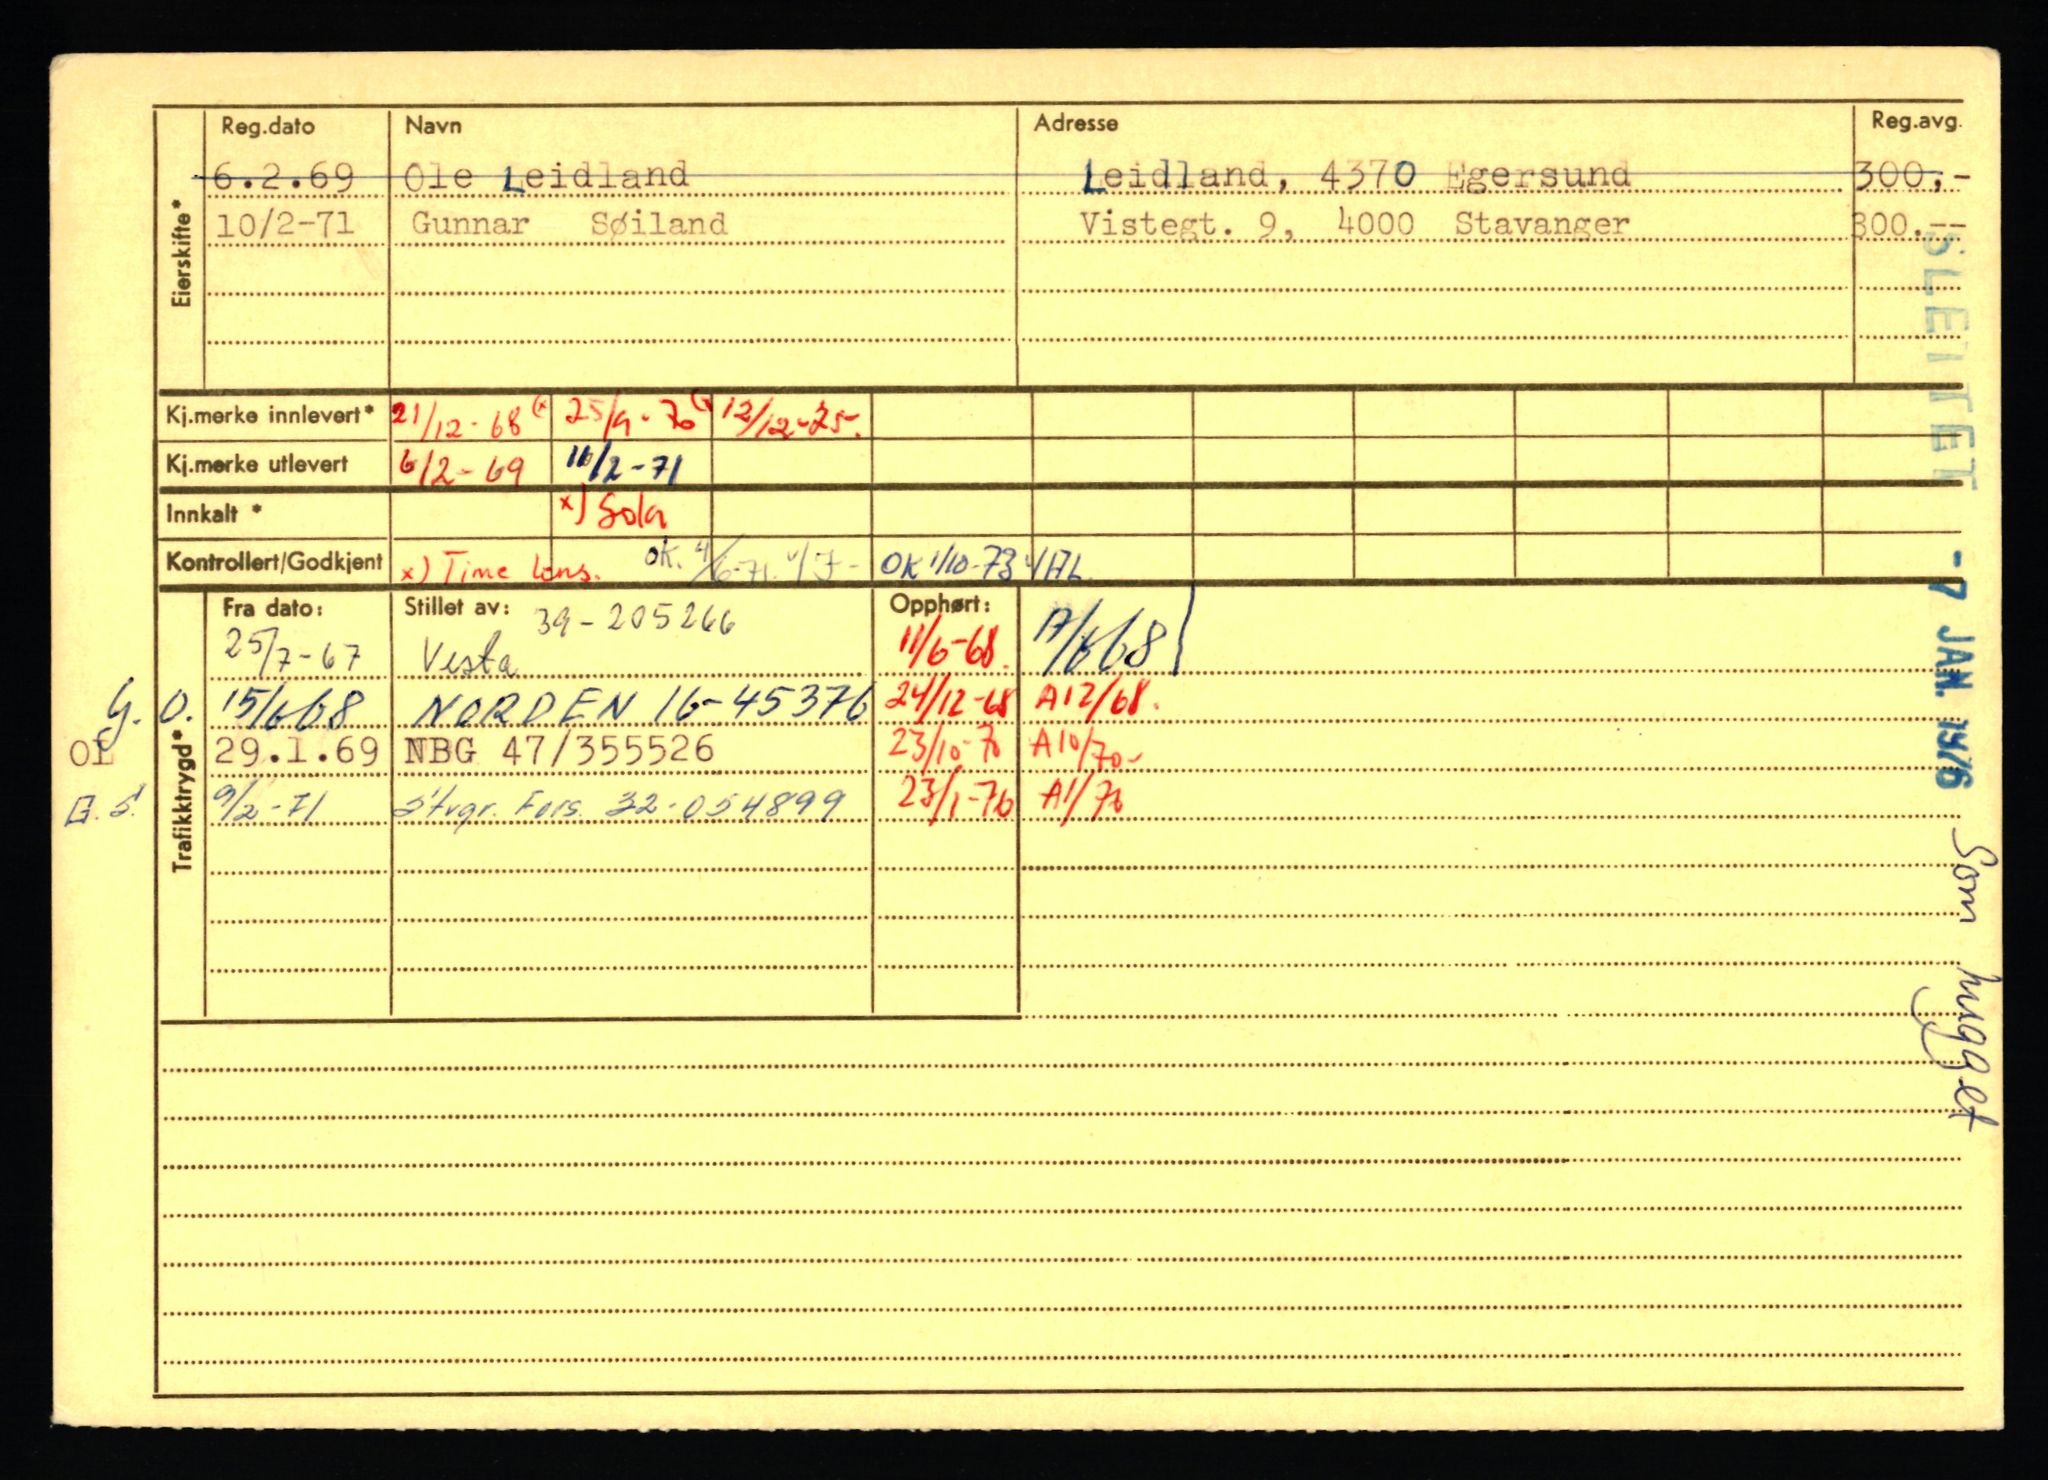 Reg.dato Navn Adresse Reg.avg.
Eierskifte*
6.2.69 Ole Leidland Leidland, 4370 Egersund 300,-
10/2-71 Gunnar Søiland Vistegt. 9, 4000 Stavanger 300.--
Kj.merke innlevert* 21/12-68 (x 25/9-70 (x 12/12-75-
Kj.merke utlevert 6/2-69 10/2-71
Innkalt * x) Sola
Kontrollert/Godkjent x) Time lens. OK. 4/6-71. OK 1/10-73
Trafikktrygd*
Fra dato: Stillet av: Opphørt:
39-205266
25/7-67 Vesta 11/6-68. 17/6/68
G. O. 15/6-68 NORDEN 16-45376 24/12-68 A12/68.
OL 29.1.69 NBG 47/355526 23/10-70 A10/70-
G. S. 9/2-71 Stvgr. Fors. 32-054899 23/1-76 A1/76
SLETTET -7 JAN. 1976 Som hugget